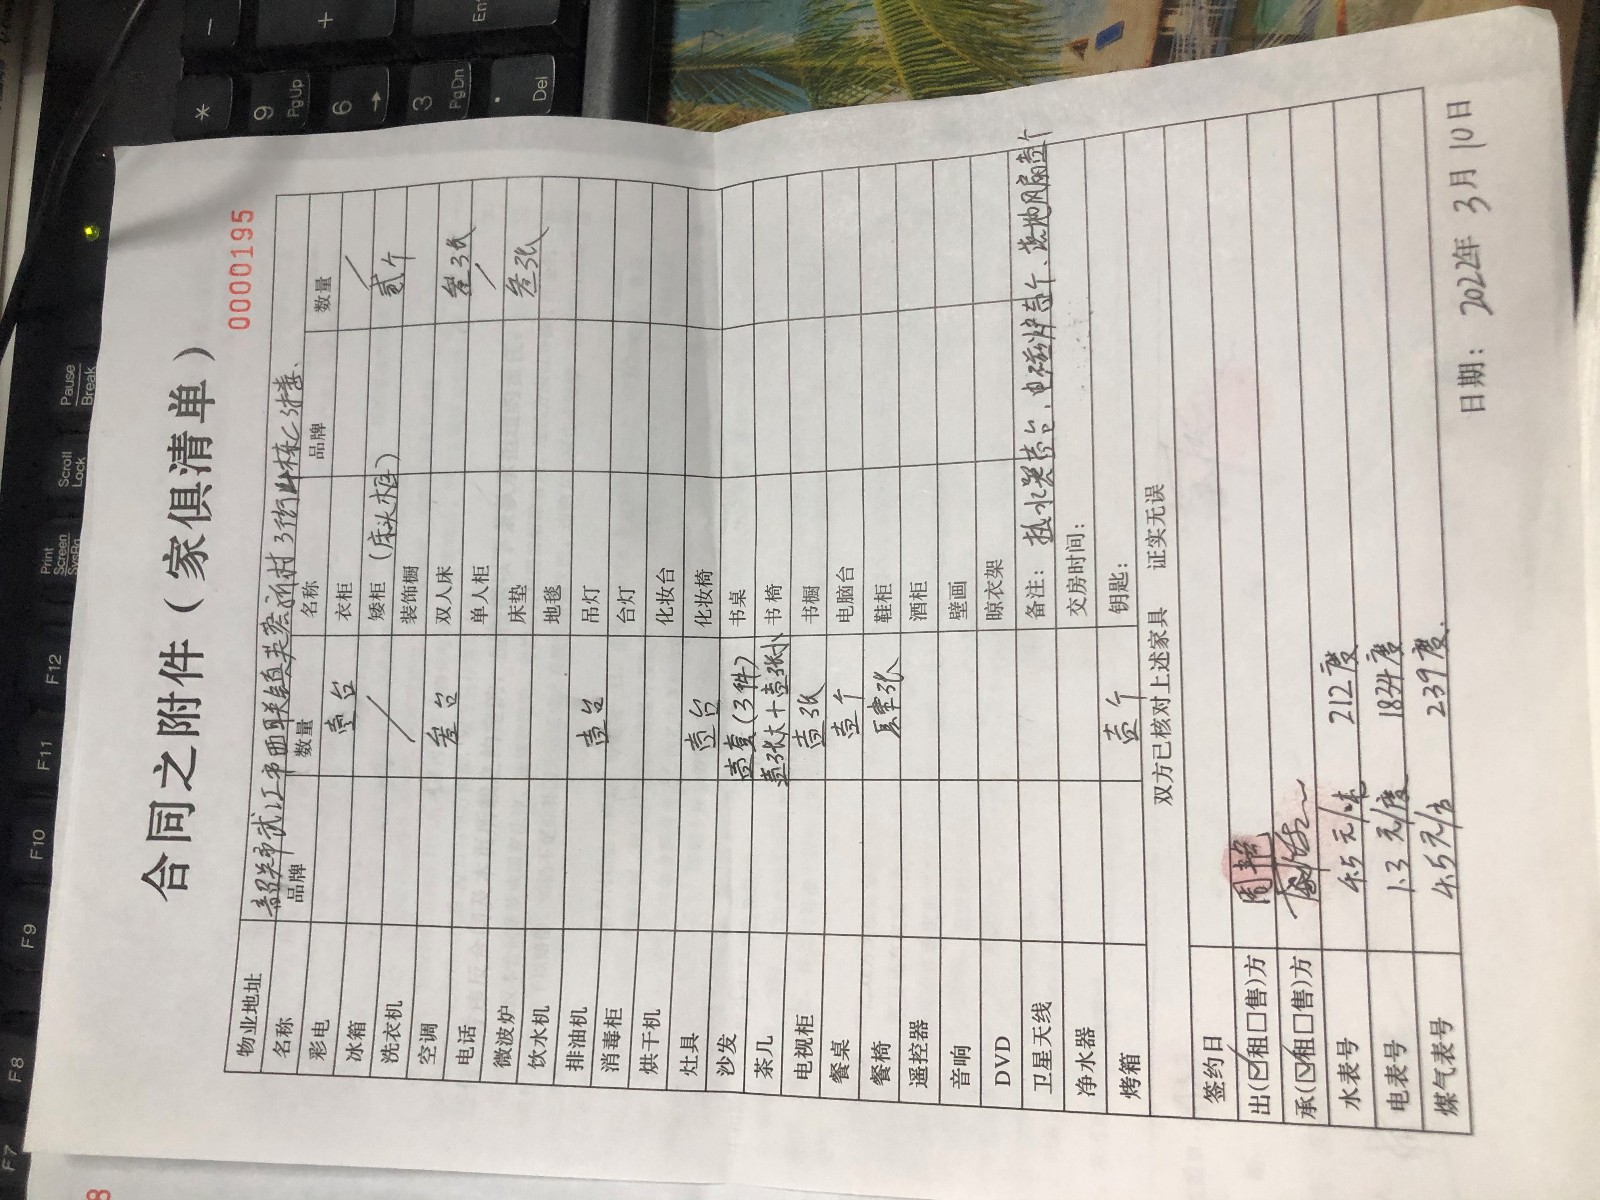 合同之附件（家俱清单）
0000195
物业地址 韶关市武江市西联镇 村3街 栋C
名称 品牌 数量 名称 品牌 数量
彩电 壹台 衣柜 /
冰箱 / 矮柜（床头柜） 贰个
洗衣机 / 装饰橱
空调 叁台 双人床 叁张
电话 单人柜 /
微波炉 床垫 叁张
饮水机 地毯
排油机 壹台 吊灯
消毒柜 台灯
烘干机 化妆台
灶具 壹台 化妆椅
沙发 壹套(3件) 书桌
茶几 壹张大+壹张小 书椅
电视柜 壹张 书橱
餐桌 壹个 电脑台
餐椅 张 鞋柜
遥控器 酒柜
音响 壁画
DVD 晾衣架
卫星天线 备注：热水器壹台、电磁炉壹个、落地风扇壹个
净水器 交房时间：
烤箱 壹个 钥匙：
双方已核对上述家具 证实无误
签约日
出(☑租□售)方 周艳
承(☑租□售)方
水表号 4.5元/吨 212度
电表号 1.3元/度 1834度
煤气表号 4.5元/方 239度.
日期： 2022年 3月10日
F7 F8 F9 F10 F11 F12
Print Screen SysRq
Scroll Lock
Pause Break
* - +
9 PgUp
6 →
3 PgDn
. Del
8